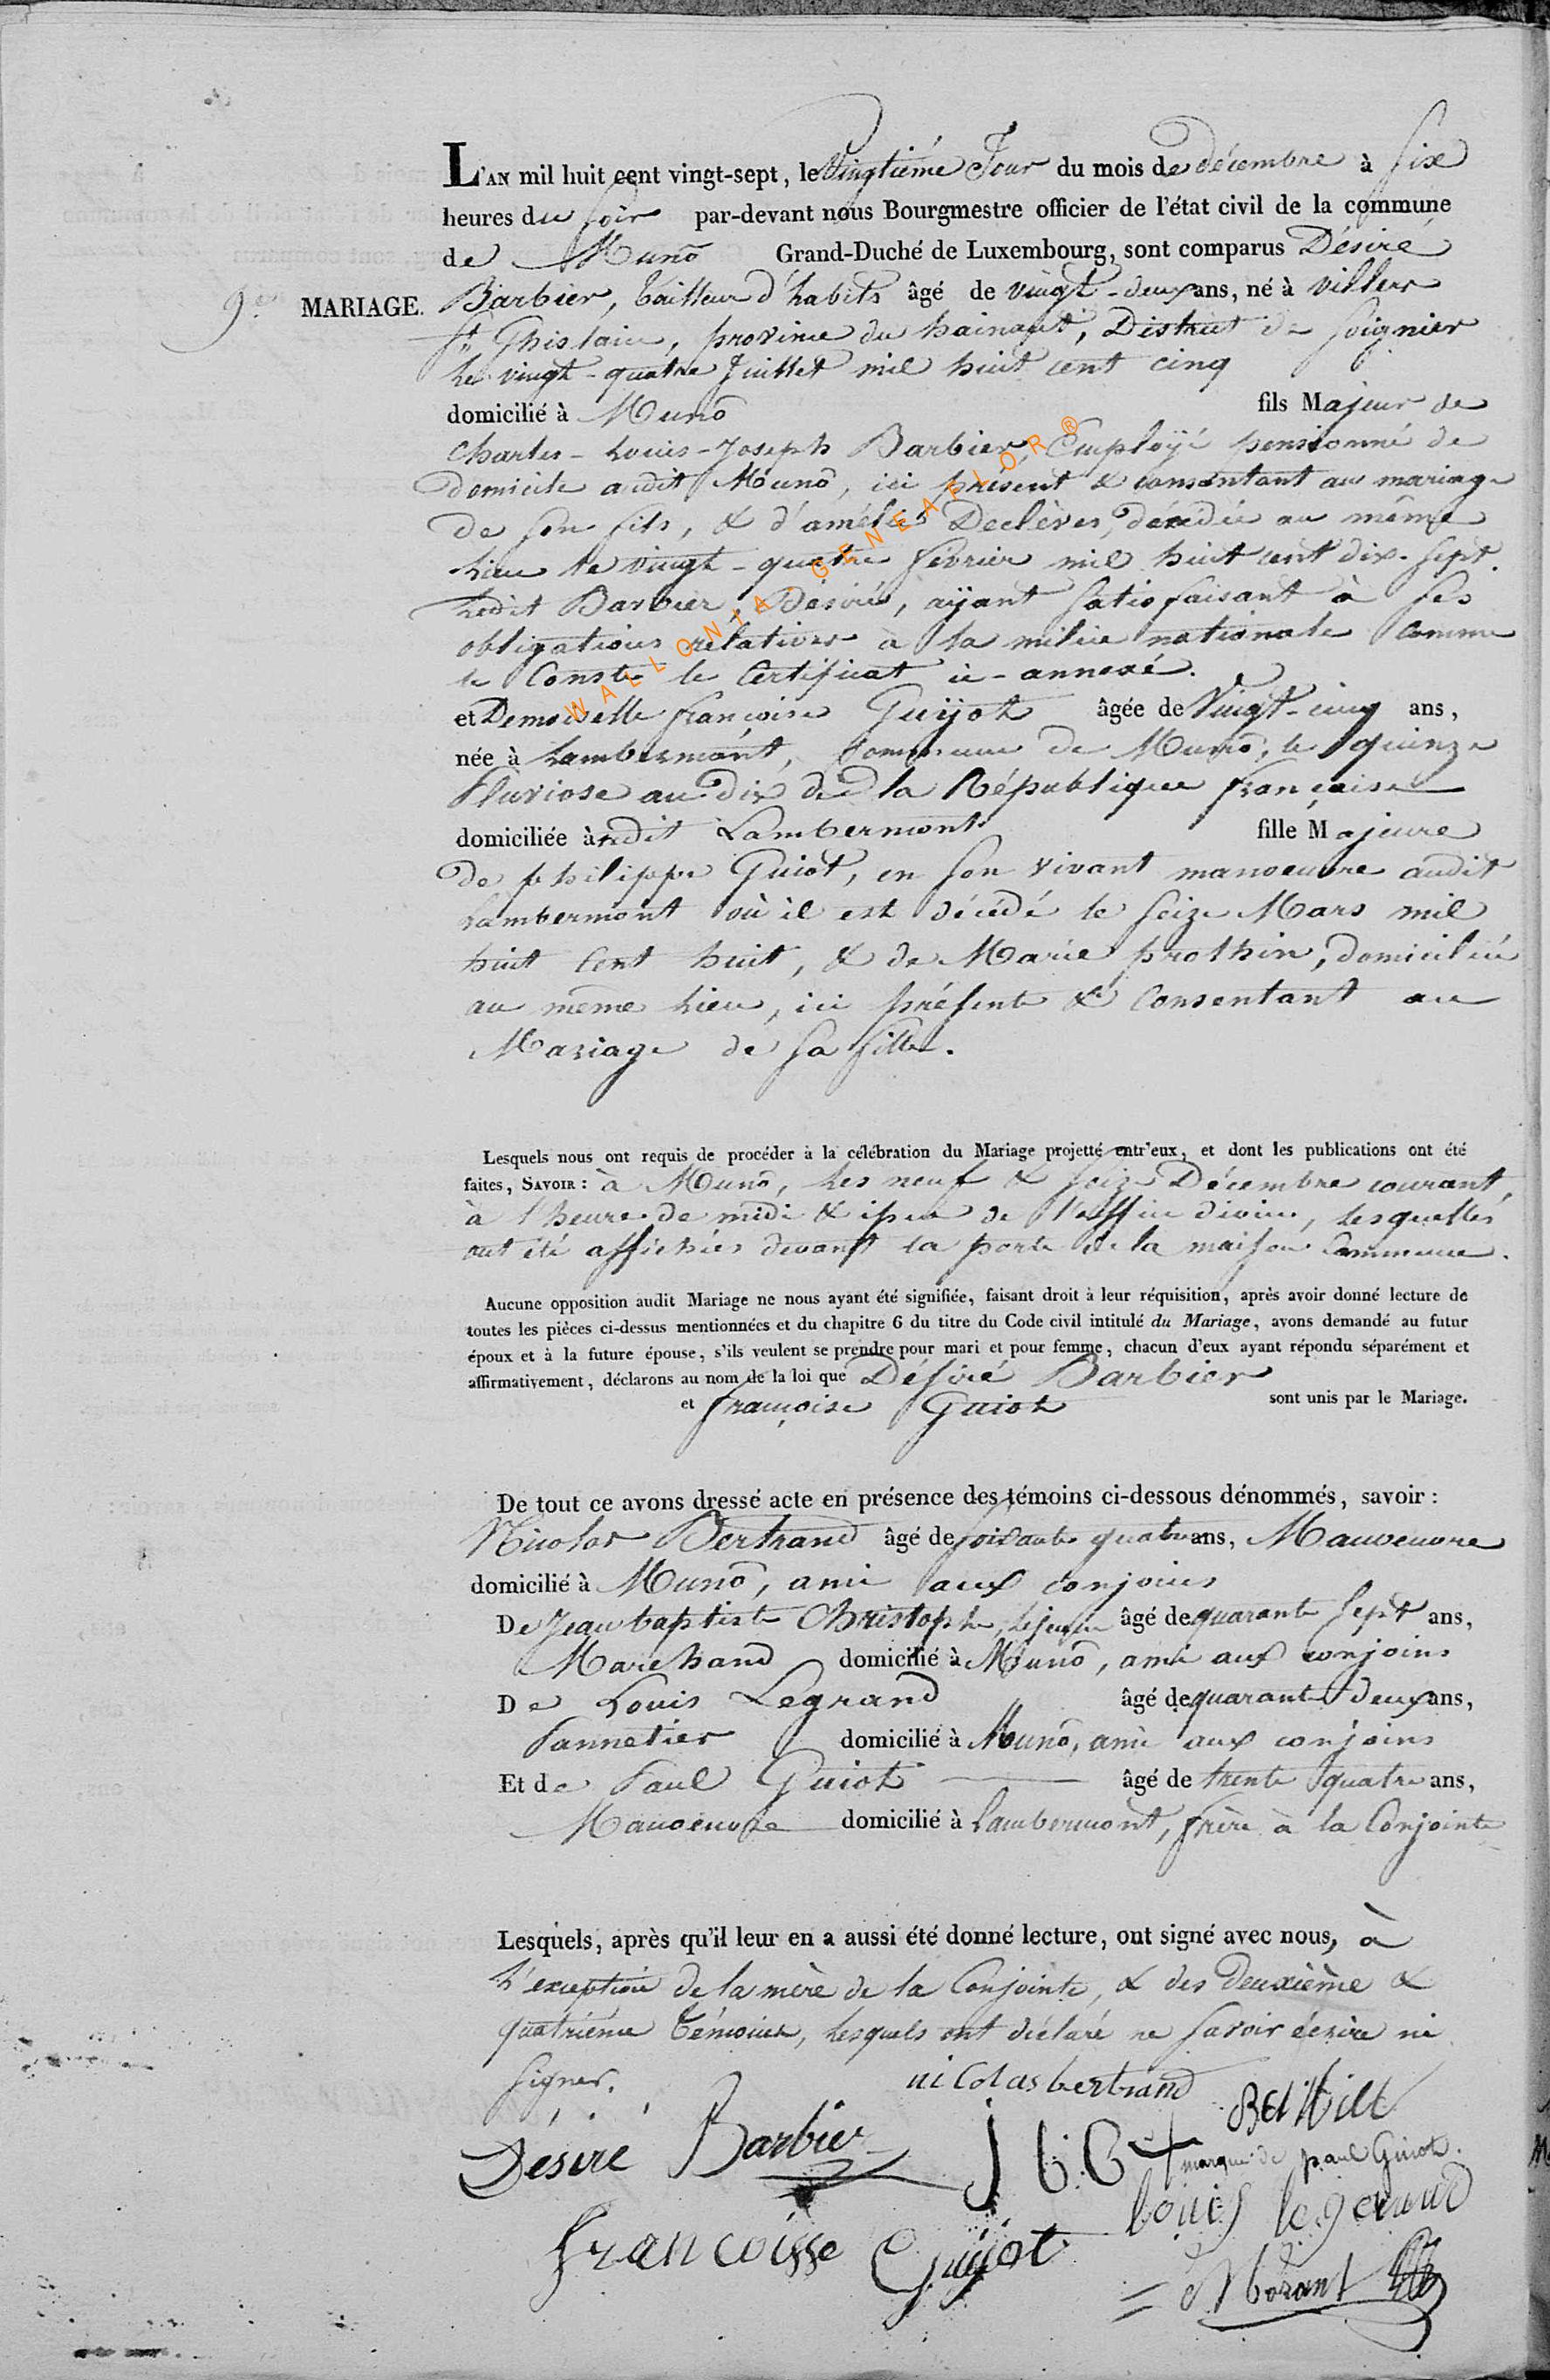 L'AN mil huit cent vingt-sept, le Vingtiéme Jour du mois de décembre à six
heures du soir par-devant nous Bourgmestre officier de l'état civil de la commune
de Munô Grand-Duché de Luxembourg, sont comparus Désiré
9e MARIAGE. Barbier, tailleur d'habits âgé de vingt-deux ans, né à Villers
St Ghislain, province du hainaut, District de Soignier
le vingt-quatre Juillet mil huit cent cinq
domicilié à Munô fils Majeur de
Charles-Louis-Joseph Barbier, Employé pensionné de
Domicile audit Munô, ici présent & consentant au mariage
de son fils, & d'amélie Declèves, décédée au même
lieu le vingt-quatre février mil huit cent dix-sept.
Ledit Barbier Désiré, aÿant satisfaisant à ses
obligations relatives à la milice nationale comme
le Conste le Certificat ci-annexé.
et Demoiselle françoise Guijot âgée de Vingt-cinq ans,
née à Lambermont, commune de Munô, le quinze
Pluviose an dix de la République française
domiciliée audit Lambermont fille Majeure
de philippe Guiot, en son vivant manoeuvre audit
Lambermont où il est décédé le seize Mars mil
huit Cent huit, & de Marie prothin, domiciliée
au même lieu, ici présente & Consentant au
Mariage de sa fille.
Lesquels nous ont requis de procéder à la célébration du Mariage projetté entr'eux, et dont les publications ont été
faites, SAVOIR : à Munô, les neuf & seize Décembre courant,
à l'heure de midi & issue de l'office divin, lesquelles
ont été affichées devant la porte de la maison Commune.
Aucune opposition audit Mariage ne nous ayant été signifiée, faisant droit à leur réquisition, après avoir donné lecture de
toutes les pièces ci-dessus mentionnées et du chapitre 6 du titre du Code civil intitulé du Mariage, avons demandé au futur
époux et à la future épouse, s'ils veulent se prendre pour mari et pour femme, chacun d'eux ayant répondu séparément et
affirmativement, déclarons au nom de la loi que Désiré Barbier
et françoise Guiot sont unis par le Mariage.
De tout ce avons dressé acte en présence des témoins ci-dessous dénommés, savoir :
Nicolas Bertrand âgé de soixante quatre ans, Manoeuvre
domicilié à Munô, ami aux conjoins
De Jean baptiste Christophe, lejeune âgé de quarante sept ans,
Marchand domicilié à Munô, ami aux conjoins
De Louis Legrand âgé de quarante deux ans,
Pannetier domicilié à Munô, ami aux conjoins
Et de Paul Guiot âgé de trente quatre ans,
Manoeuvre domicilié à Lambermont, frère à la Conjointe
Lesquels, après qu'il leur en a aussi été donné lecture, ont signé avec nous, à
l'exception de la mère de la Conjointe, & des Deuxième &
quatrième témoins, lesquels ont déclaré ne savoir écrire ni
signer.
nicolas bertrand
Desiré Barbier J b C
marque de paul Guiot.
francoisse Guijot
Morant
WALLONIA - GENEAFLOR ®